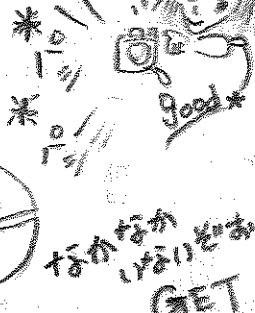 good*
なかなか
いないぞお
GET